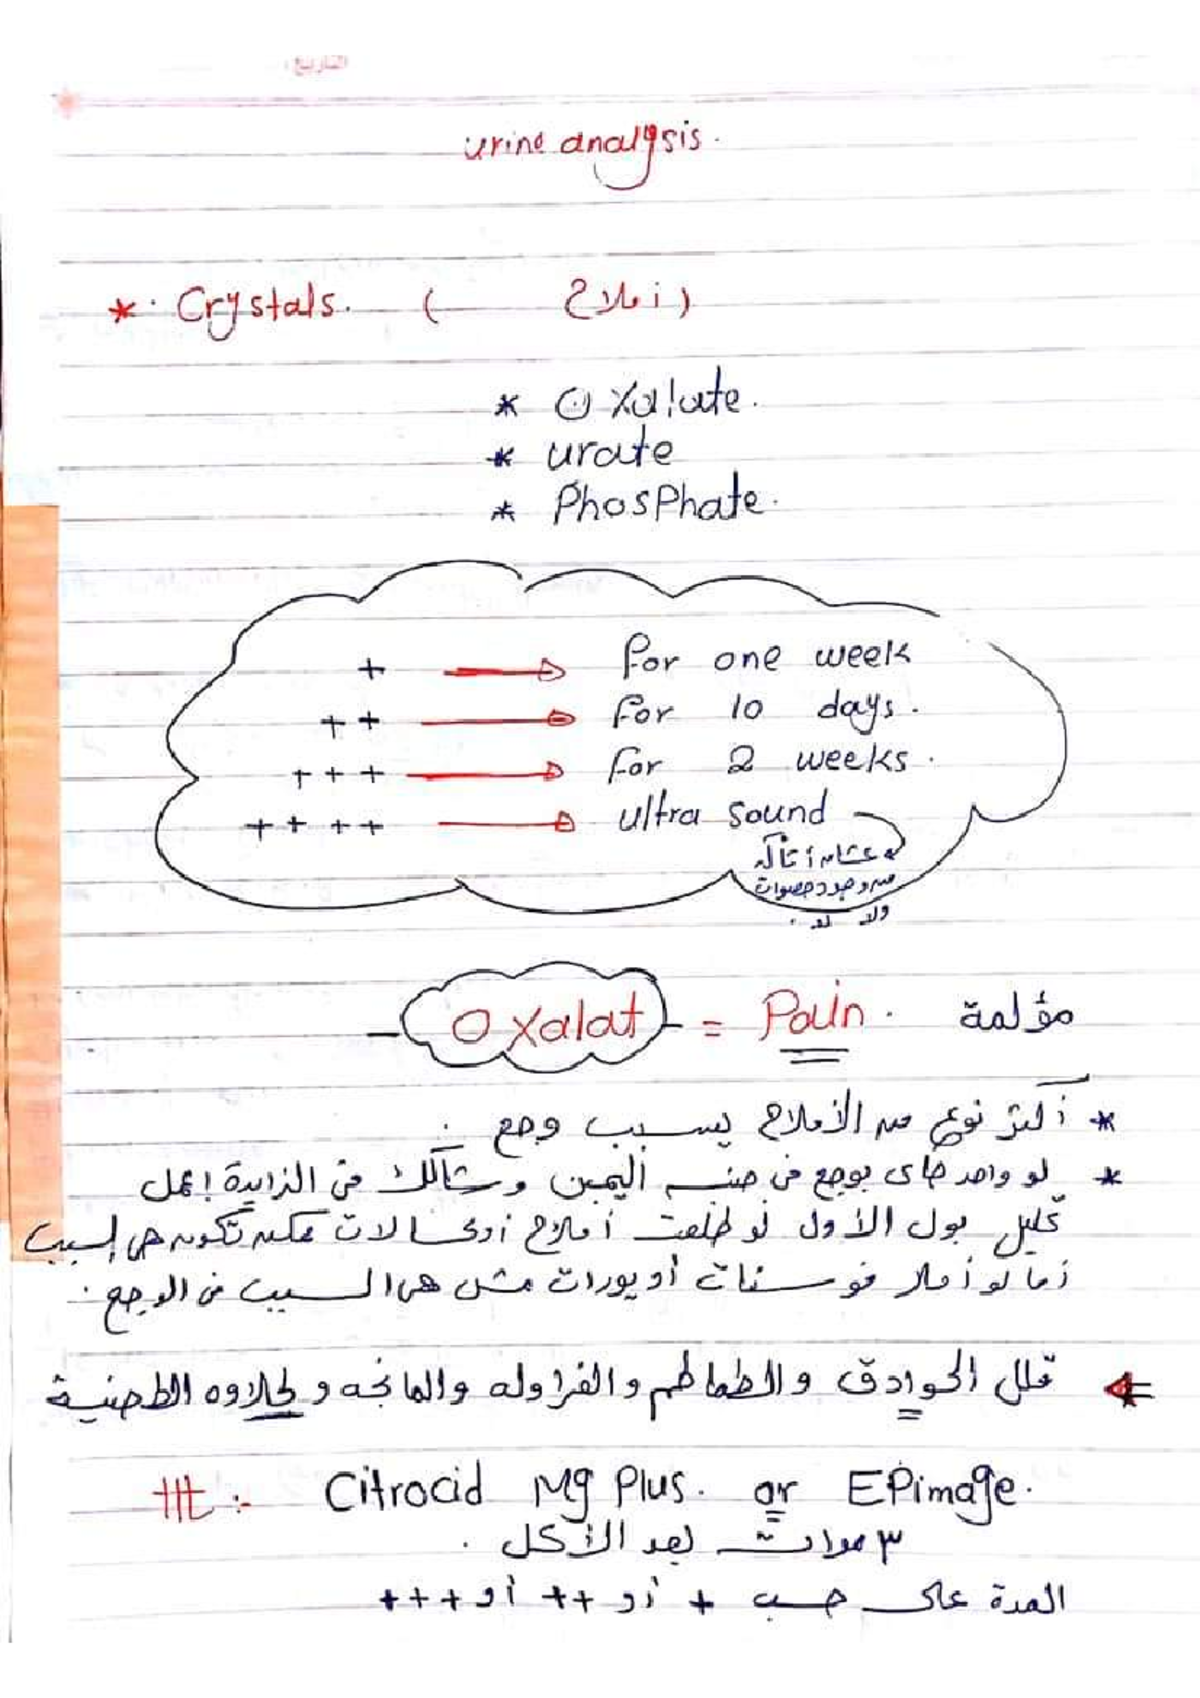 التاريخ:
urine analysis.
* Crystals. ( أملاح )
* Oxalate.
* urate
* Phosphate.
+ → for one week
++ → for 10 days.
+++ → for 2 weeks.
++++ → ultra sound
عشان أتأكد
من وجود حصوات
ولا لا.
Oxalat = Pain. مؤلمة
* أكتر نوع من الأملاح يسبب وجع.
* لو واحد جاى بوجع في جنبه اليمين وشاكك في الزايدة إعمل
تحليل بول الأول لو طلعت أملاح أوكسالات ممكن تكون هي السبب
أما لو أملاح فوسفات أو يورات مش هى السبب في الوجع.
قلل الحوادق والطماطم والفراوله والمانجه والحلاوه الطحنية
ttt :- Citrocid Mg Plus. or EPimage.
٣ مرات بعد الأكل.
المدة على حسب + أو ++ أو +++